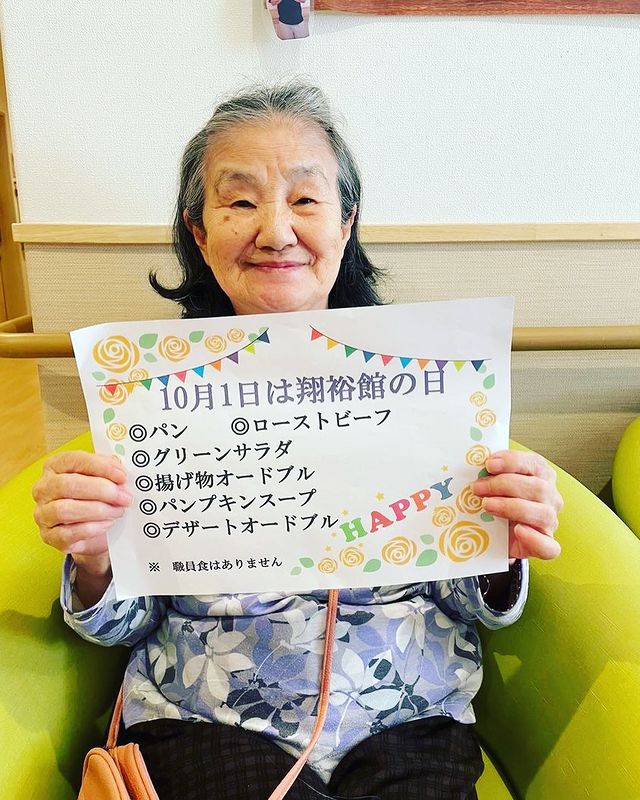 10月1日は翔裕館の日
◎パン ◎ローストビーフ
◎グリーンサラダ
◎揚げ物オードブル
◎パンプキンスープ
◎デザートオードブル
HAPPY
※ 職員食はありません